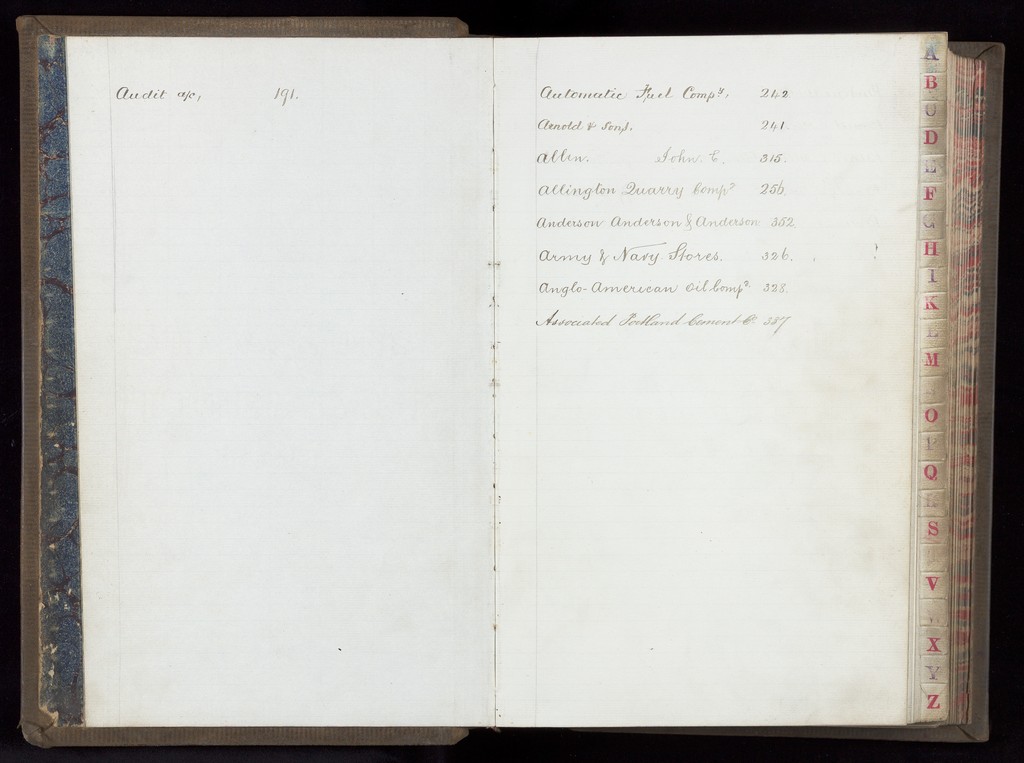 Audit a/c, 191.
Automatic Fuel Compy, 242
Arnold & Sons. 241.
Allen. John E. 315.
Allington Quarry Compy 256.
Anderson Anderson & Anderson 352
Army & Navy Stores. 326.
Anglo-American Oil Compy. 328.
Associated Portland Cement Co 337
A
B
D
E
F
G
H
I
K
L
M
O
P
Q
R
S
V
X
Y
Z